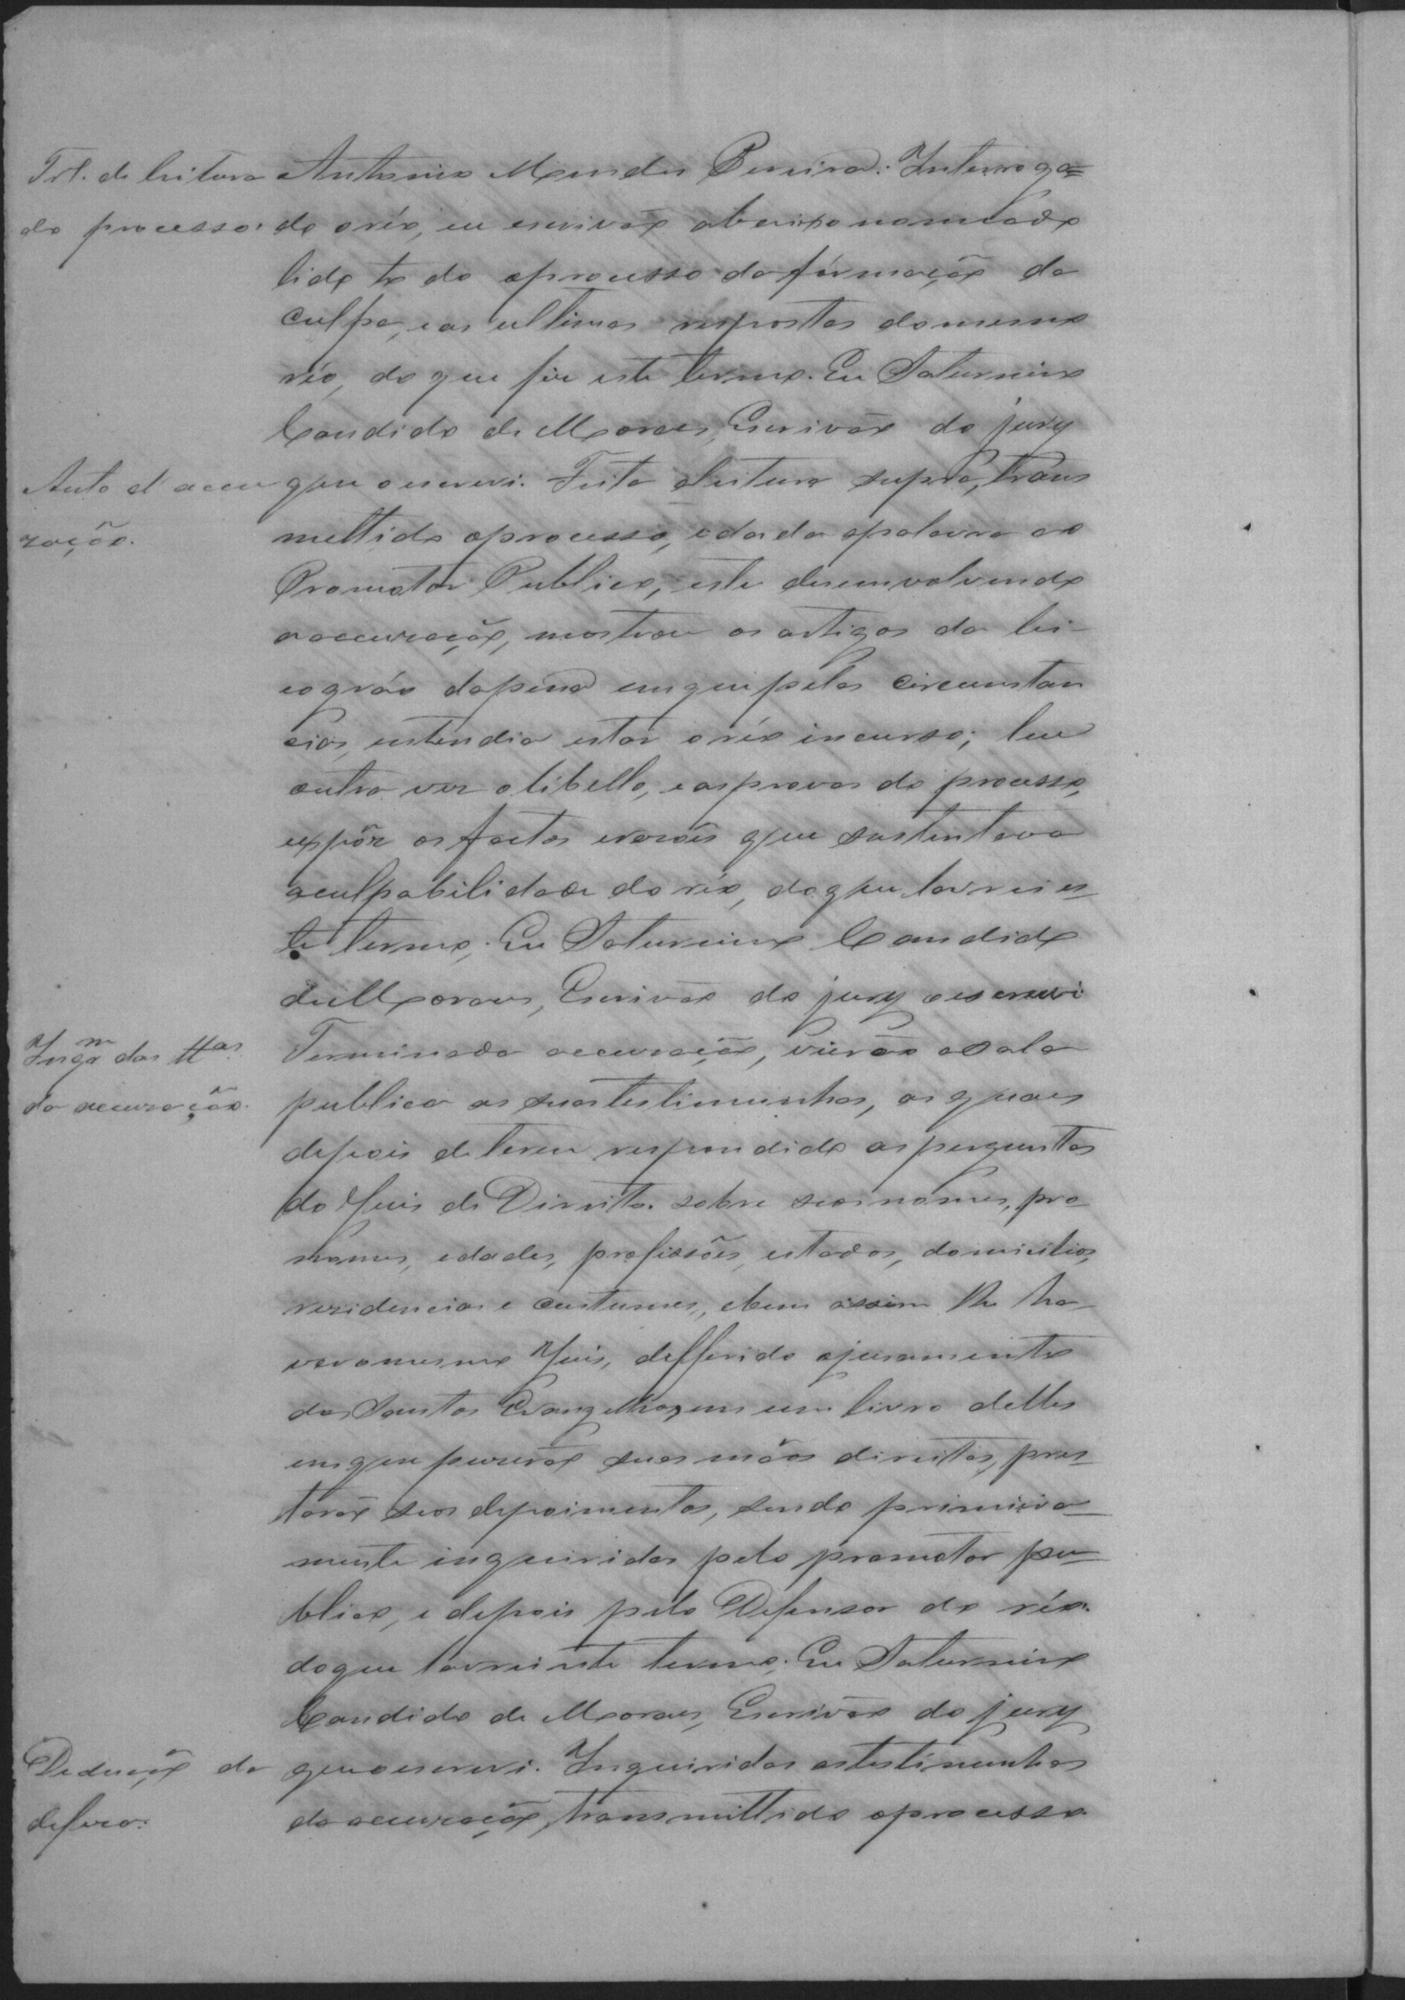 Trl. de leitura
do processo.
Antonio Mendes Pereira. Interroga=
do o réo, eu escrivão abaixo nomeado
lido to do o processo da fórmação da
culpa, e as ultimas respostas do mesmo
réo, do que fiz este termo. Eu Saturnino
Candido de Moraes, Escrivão do jury
Auto d accu
zação.
que o escrevi. Feita a leitura supra, trans
mettido o processo, e dada a palavra ao
Promotor Publico, este desenvolvendo
a accuzação, mostrou os artigos da lei
e o gráo da pena em que pelas circunstan
cias, entendia estar o réo incurso; leu
outra vez o libello, e as provas do processo,
expôz os factos e razões que sustentava
a culpabilidade do réo, do que lavrei es-
te termo. Eu Saturnino Candido
de Moraes, Escrivão do jury o escrevi
Inqm das ttas
da accuzação.
Terminada accuzação, vierão a sala
publica as suas testimunhas, as quaes
depois de terem respondido as perguntas
do Juis de Direito sobre seos nomes, pro
nomes, edades, profissões, estados, domicilios,
rezidencias e custumes, e bem assim lhe ha
vera o mesmo Juis, defferido o juramento
dos Santos Evangelhos, em um livro delles
em que puzerão suas mãos direitas, pres-
tarão seos depoimentos, sendo primeira-
mente inqueridas pelo promotor pu-
blico, e depois pelo Defensor do réo.
do que lavrei este termo. Eu Saturnino
Candido de Moraes, Escrivão do jury
Deducção da
defeza.
que o escrevi. Inquiridas as testimunhas
da accuzação, transmittido o processo